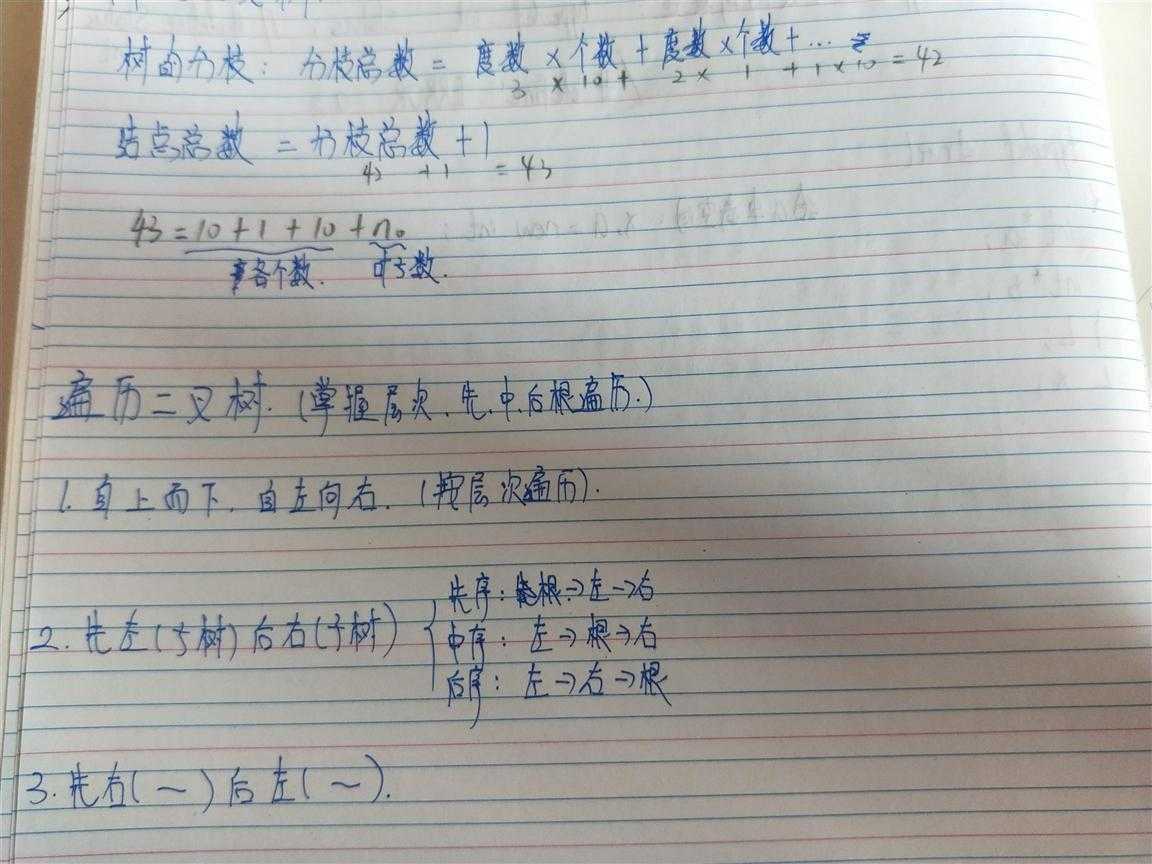 树的分枝: 分枝总数 = 度数 × 个数 + 度数 × 个数 + ...
3 × 10 + 2 × 1 + 1 × 10 = 42
结点总数 = 分枝总数 + 1
42 + 1 = 43
43 = 10 + 1 + 10 + n₀
各个数. 叶子数.
遍历二叉树. (掌握层次、先、中、后根遍历.)
1. 自上而下. 自左向右. (按层次遍历).
2. 先左(子树)后右(子树)
先序: 根→左→右
中序: 左→根→右
后序: 左→右→根
3. 先右(~)后左(~).